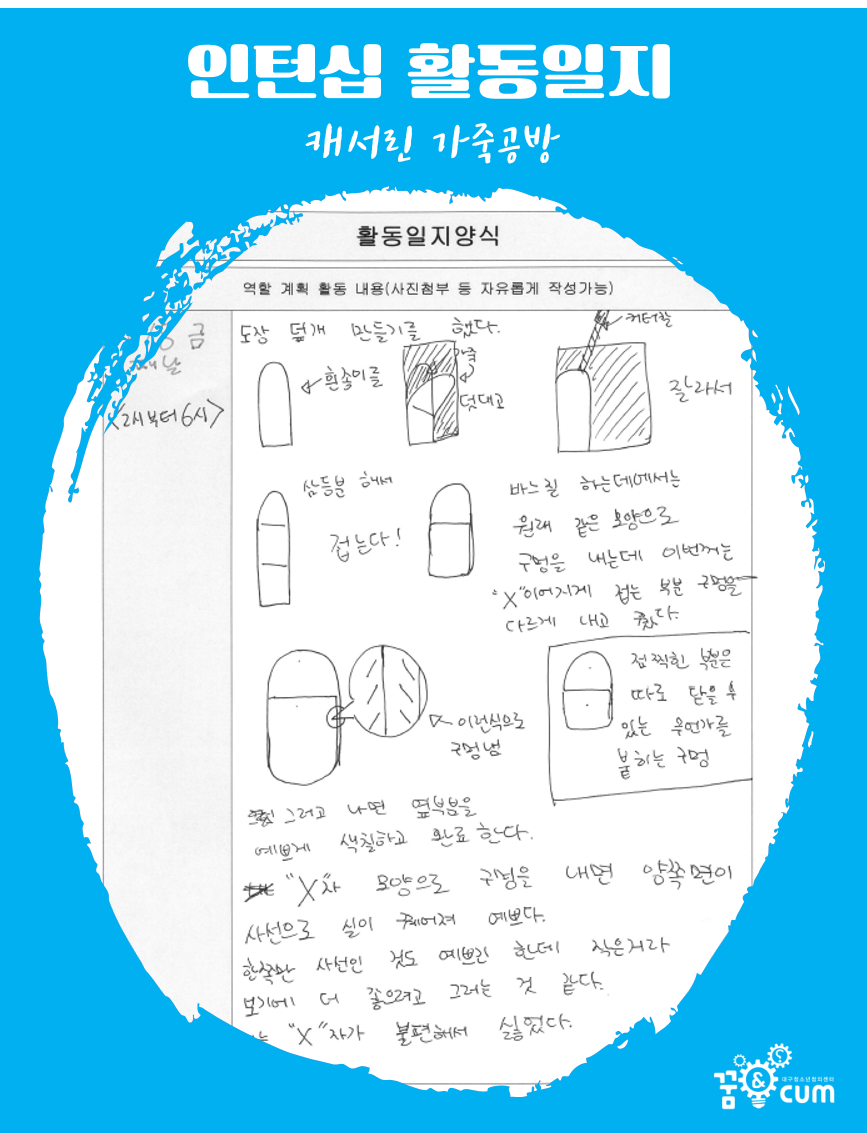 인턴십 활동일지
캐서린 가죽공방
활동일지양식
역할 계획 활동 내용(사진첨부 등 자유롭게 작성가능)
금
째날
<2시부터 6시>
도장 덮개 만들기를 했다.
흰종이를
가죽
덧대고
커터칼
잘라서
삼등분 해서
접는다!
바느질 하는데에서는
원래 같은 모양으로
구멍을 내는데 이번꺼는
"X"이어지게 접는 부분 구멍을
다르게 내고 줬다.
이런식으로
구멍냄
점찍힌 부분은
따로 닫을 수
있는 무언가를
붙히는 구멍
그러고 나면 옆부분을
예쁘게 색칠하고 완료한다.
"X"자 모양으로 구멍을 내면 양쪽면이
사선으로 실이 꿰어져 예쁘다.
한쪽만 사선인 것도 예쁘긴 한데 작은거라
보기에 더 좋으려고 그러는 것 같다.
는 "X"자가 불편해서 싫었다.
꿈&cum
대구청소년창의센터